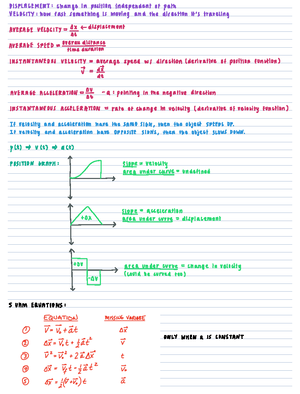 DISPLACEMENT: change in position independent of path
VELOCITY: how fast something is moving and the direction it's traveling
AVERAGE VELOCITY = Δx/Δt ← displacement
AVERAGE SPEED = overall distance/time duration
INSTANTANEOUS VELOCITY = average speed w/ direction (derivative of position function)
v⃗ = dx⃗/dt
AVERAGE ACCELERATION = Δv/Δt -a : pointing in the negative direction
INSTANTANEOUS ACCELERATION = rate of change in velocity (derivative of velocity function)
If velocity and acceleration have the same sign, then the object SPEEDS UP.
If velocity and acceleration have OPPOSITE signs, then the object SLOWS DOWN.
x(t) ⇒ v(t) ⇒ a(t)
POSITION GRAPH:
slope = velocity
area under curve = undefined
+Δx
slope = acceleration
area under curve = displacement
+ΔV
-ΔV
area under curve = change in velocity
(could be zeroed out)
5 UAM EQUATIONS:
EQUATION MISSING VARIABLE
① V⃗ = V⃗₀ + a⃗t Δx⃗
② Δx⃗ = V⃗₀t + ½a⃗t² V⃗
③ V⃗² = V⃗₀² + 2a⃗Δx⃗ t
④ Δx⃗ = V⃗f t - ½a⃗t² V⃗₀
⑤ Δx⃗ = ½(V⃗+V⃗₀)t a⃗
ONLY WHEN a IS CONSTANT